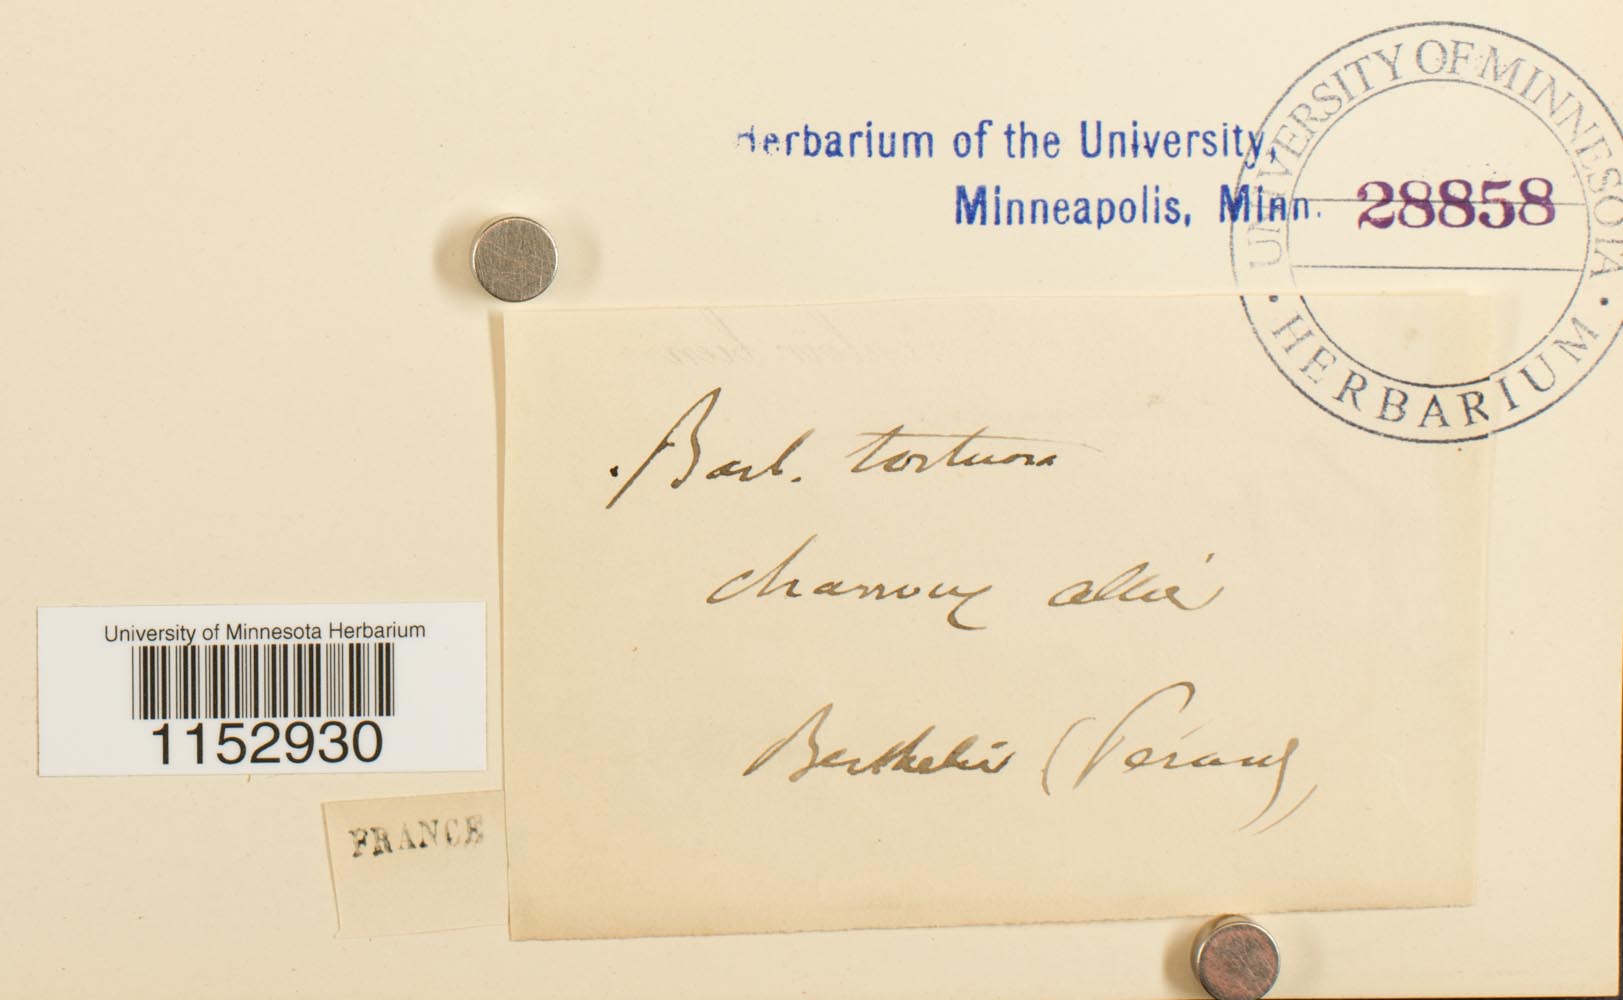 UNIVERSITY OF MINNESOTA
• HERBARIUM •
Herbarium of the University,
Minneapolis, Minn.
28858
Barb. tortuosa
charroux allier
University of Minnesota Herbarium
1152930
FRANCE